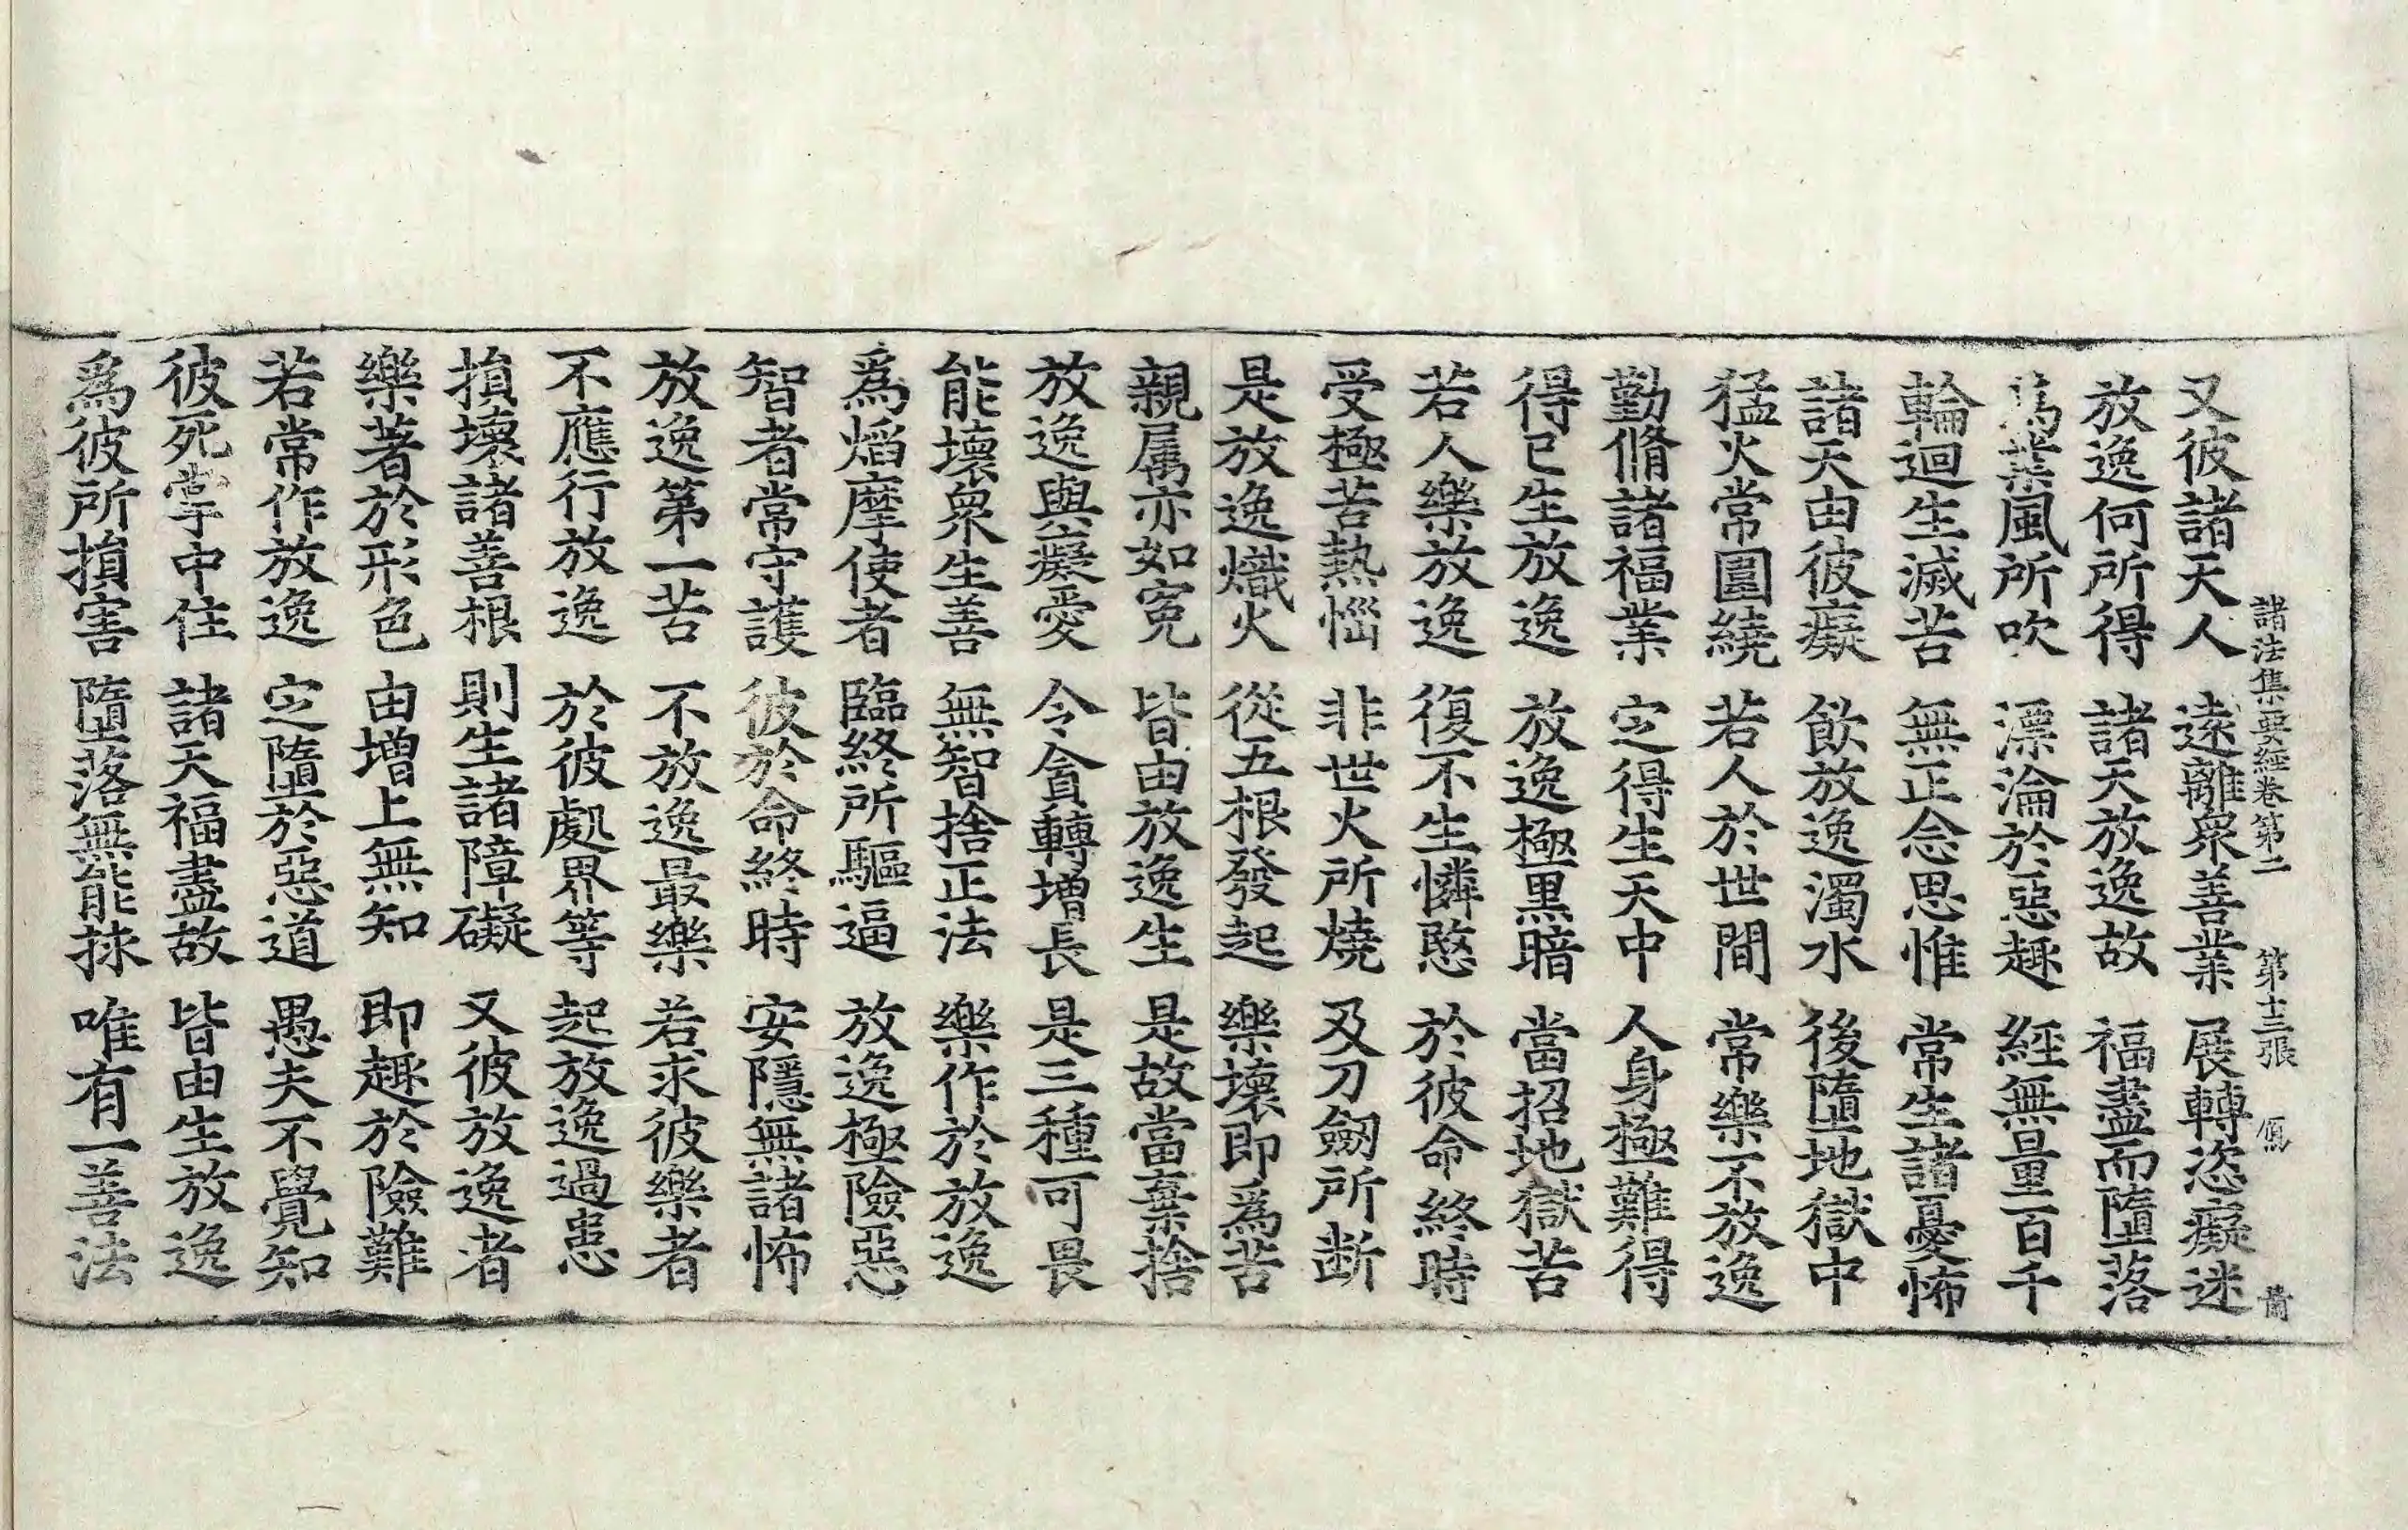 諸法集要經卷第二 第十三張
又彼諸天人 遠離衆善業 展轉恣癡迷
放逸何所得 諸天放逸故 福盡而墮落
爲業風所吹 漂淪於惡趣 經無量百千
輪迴生滅苦 無正念思惟 常生諸憂怖
諸天由彼癡 飲放逸濁水 後墮地獄中
猛火常圍繞 若人於世間 常樂不放逸
勤脩諸福業 㝎得生天中 人身極難得
得已生放逸 放逸極黑暗 當招地獄苦
若人樂放逸 復不生憐愍 於彼命終時
受極苦熱惱 非世火所燒 及刀劒所断
是放逸熾火 從五根發起 樂壞即爲苦
親属亦如寃 皆由放逸生 是故當棄捨
放逸與癡愛 令貪轉增長 是三種可畏
能壞衆生善 無智捨正法 樂作於放逸
爲焰摩使者 臨終所驅逼 放逸極險惡
智者常守護 彼於命終時 安隱無諸怖
放逸第一苦 不放逸最樂 若求彼樂者
不應行放逸 於彼處界等 起放逸過患
損壞諸善根 則生諸障礙 又彼放逸者
樂著於形色 由增上無知 即趣於險難
若常作放逸 㝎墮於惡道 愚夫不覺知
彼死掌中住 諸天福盡故 皆由生放逸
爲彼所損害 墮落無能捄 唯有一善法